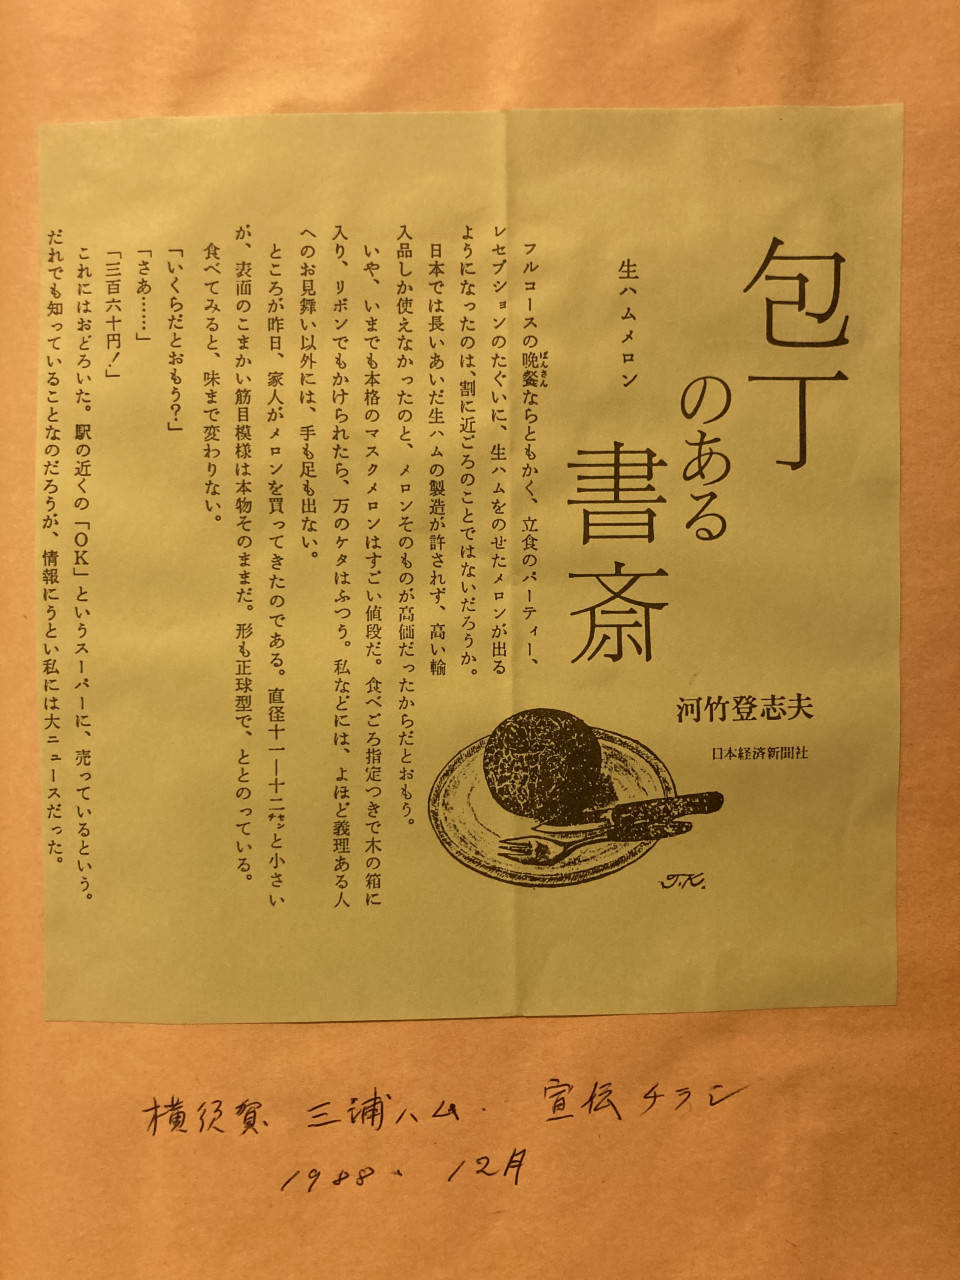 包丁
のある
書斎
河竹登志夫
日本経済新聞社
生ハムメロン
フルコースの晩餐ならともかく、立食のパーティー、
ばんさん
レセプションのたぐいに、生ハムをのせたメロンが出る
ようになったのは、割に近ごろのことではないだろうか。
日本では長いあいだ生ハムの製造が許されず、高い輸
入品しか使えなかったのと、メロンそのものが高価だったからだとおもう。
いや、いまでも本格のマスクメロンはすごい値段だ。食べごろ指定つきで木の箱に
入り、リボンでもかけられたら、万のケタはふつう。私などには、よほど義理ある人
へのお見舞い以外には、手も足も出ない。
ところが昨日、家人がメロンを買ってきたのである。直径十一―十二センチと小さい
が、表面のこまかい筋目模様は本物そのままだ。形も正球型で、ととのっている。
食べてみると、味まで変わりない。
「いくらだとおもう?」
「さあ……」
「三百六十円!」
これにはおどろいた。駅の近くの「OK」というスーパーに、売っているという。
だれでも知っていることなのだろうが、情報にうとい私には大ニュースだった。
J.K.
横須賀 三浦ハム. 宣伝チラシ
1988、12月